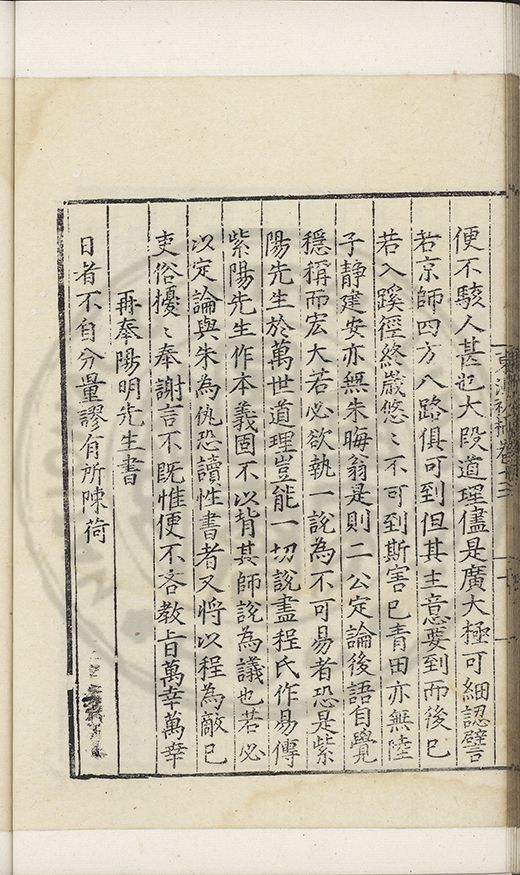 便不駭人甚也大段道理儘是廣大極可細認譬
若京師四方八路俱可到但其主意要到而後已
若入蹊徑終歲悠〻不可到斯害已青田亦無陸
子靜建安亦無朱晦翁是則二公定論後語自覺
穩稱而宏大若必欲執一說為不可易者恐是紫
陽先生於萬世道理豈能一切說盡程氏作易傳
紫陽先生作本義固不以背其師說為議也若必
以定論與朱為仇恐讀性書者又將以程為敵已
吏俗擾〻奉謝言不既惟便不吝教旨萬幸萬幸
再奉陽明先生書
日者不自分量謬有所陳荷